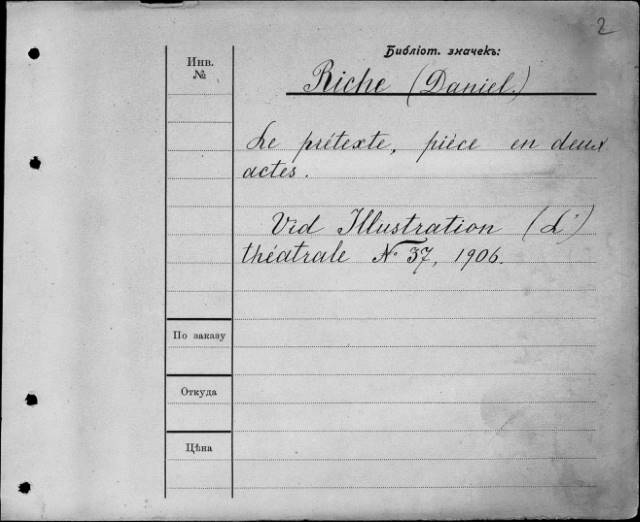 2
Библіот. значекъ:
Инв.
№
Riche (Daniel)
Le prétexte, pièce en deux
actes.
Vid Illustration (L')
théatrale № 37, 1906.
По заказу
Откуда
Цѣна